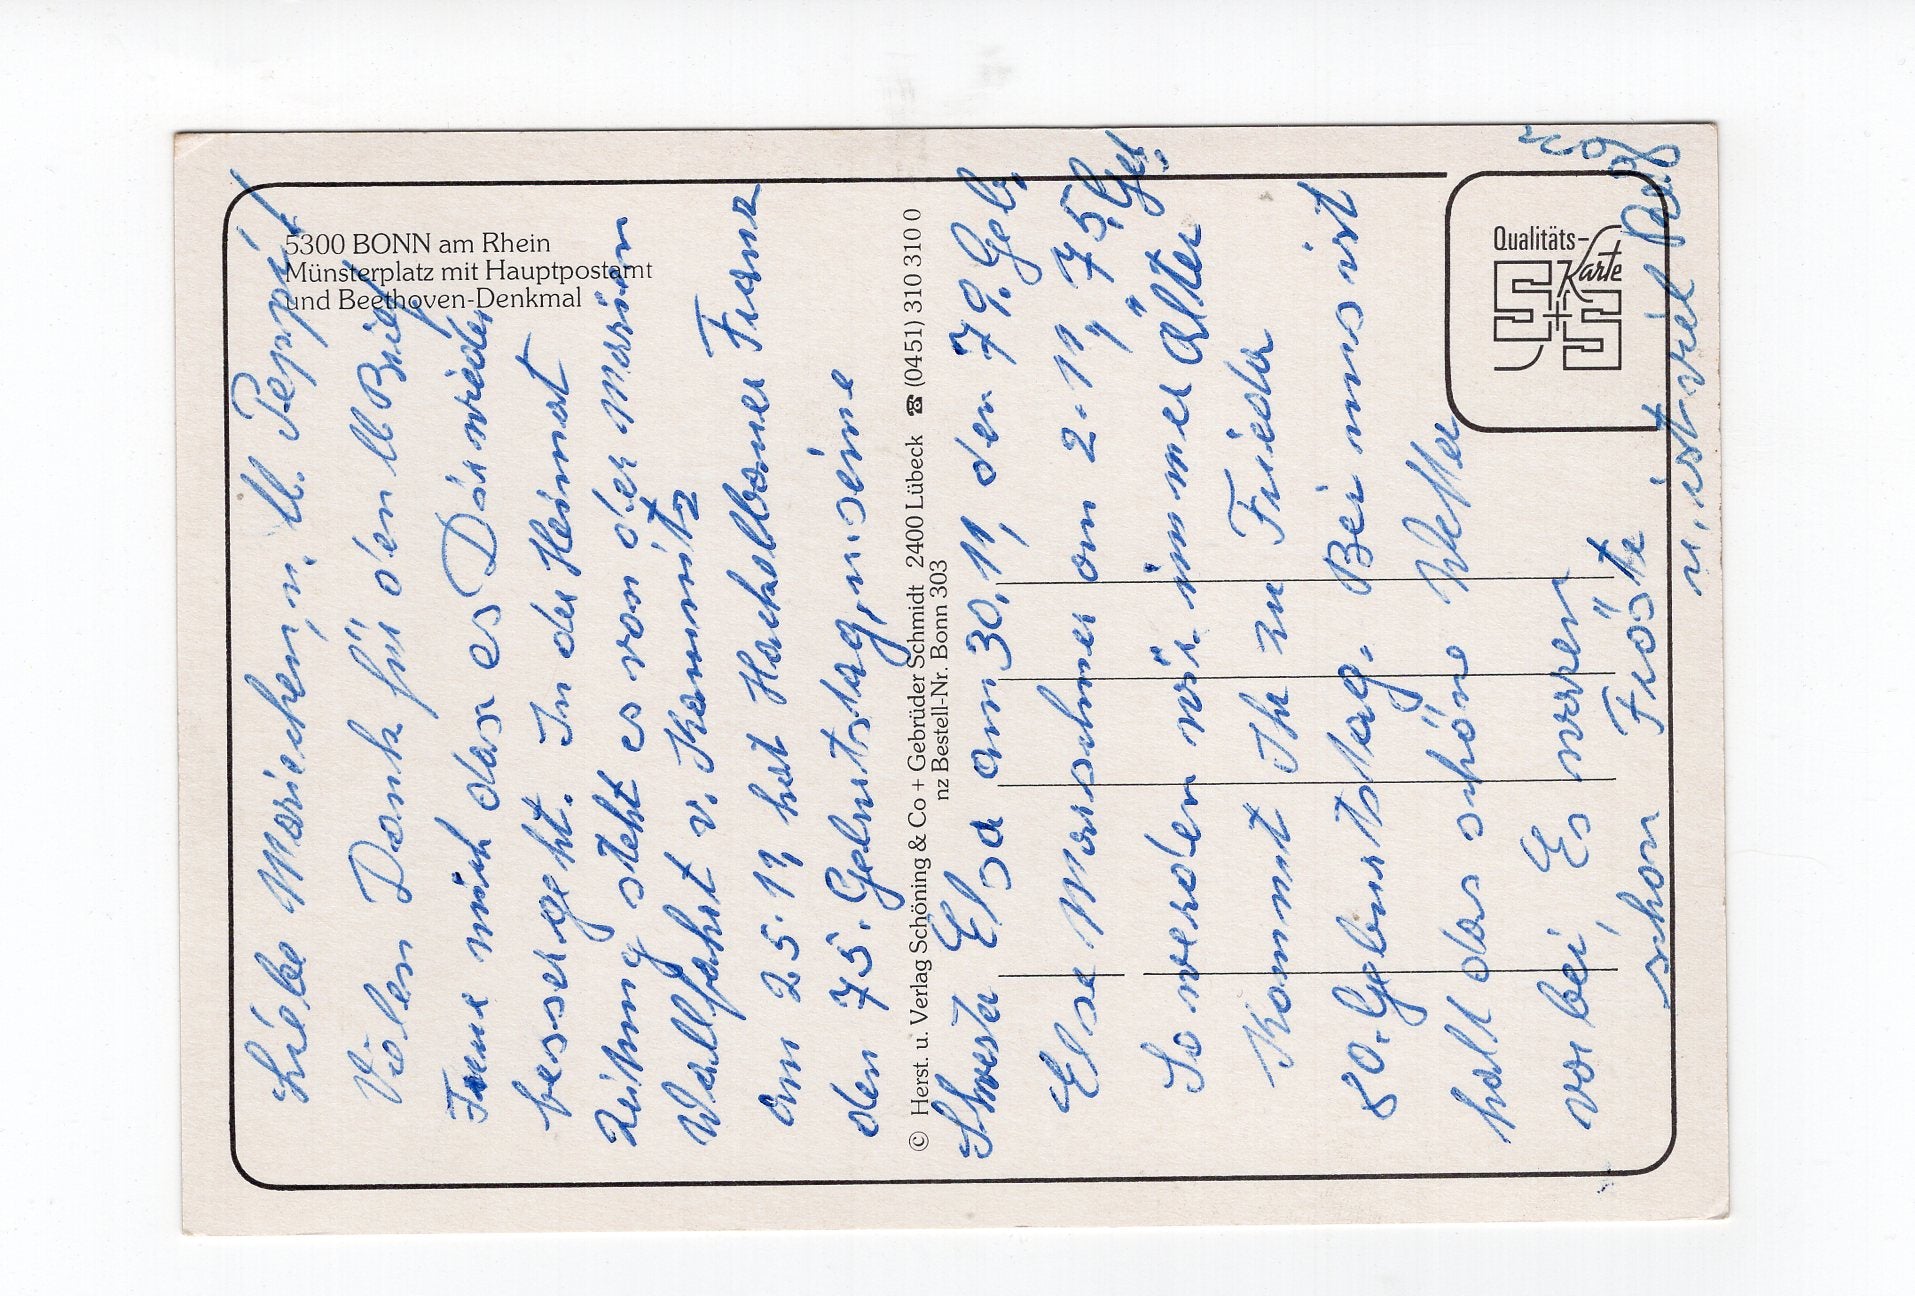 5300 BONN am Rhein
Münsterplatz mit Hauptpostamt
und Beethoven-Denkmal
Qualitäts-
Karte
S+S
© Herst. u. Verlag Schöning & Co + Gebrüder Schmidt 2400 Lübeck ☎ (0451) 310 310 0
nz Bestell-Nr. Bonn 303
Liebe Mariechen, u. lb. Peppi!
Vielen Dank für den lb Brief
Freue mich das es Dir wieder
besser geht. In der Heimat
Zeitung steht es von der Marien
Wallfahrt v. Kamnitz
am 25.11, hat Hachelbauer Franz
den 75. Geburtstag, u. seine
Schwester Elsa am 30.11, den 79. Geb,
Else Marschner am 2.11, 75. Geb.
So werden wir immer älter
Kommt Ihr zu Frieda
80. Geburtstag. Bei uns ist
halt das schöne Wetter
vorbei, Es waren
schon Fröste
u, ist viel